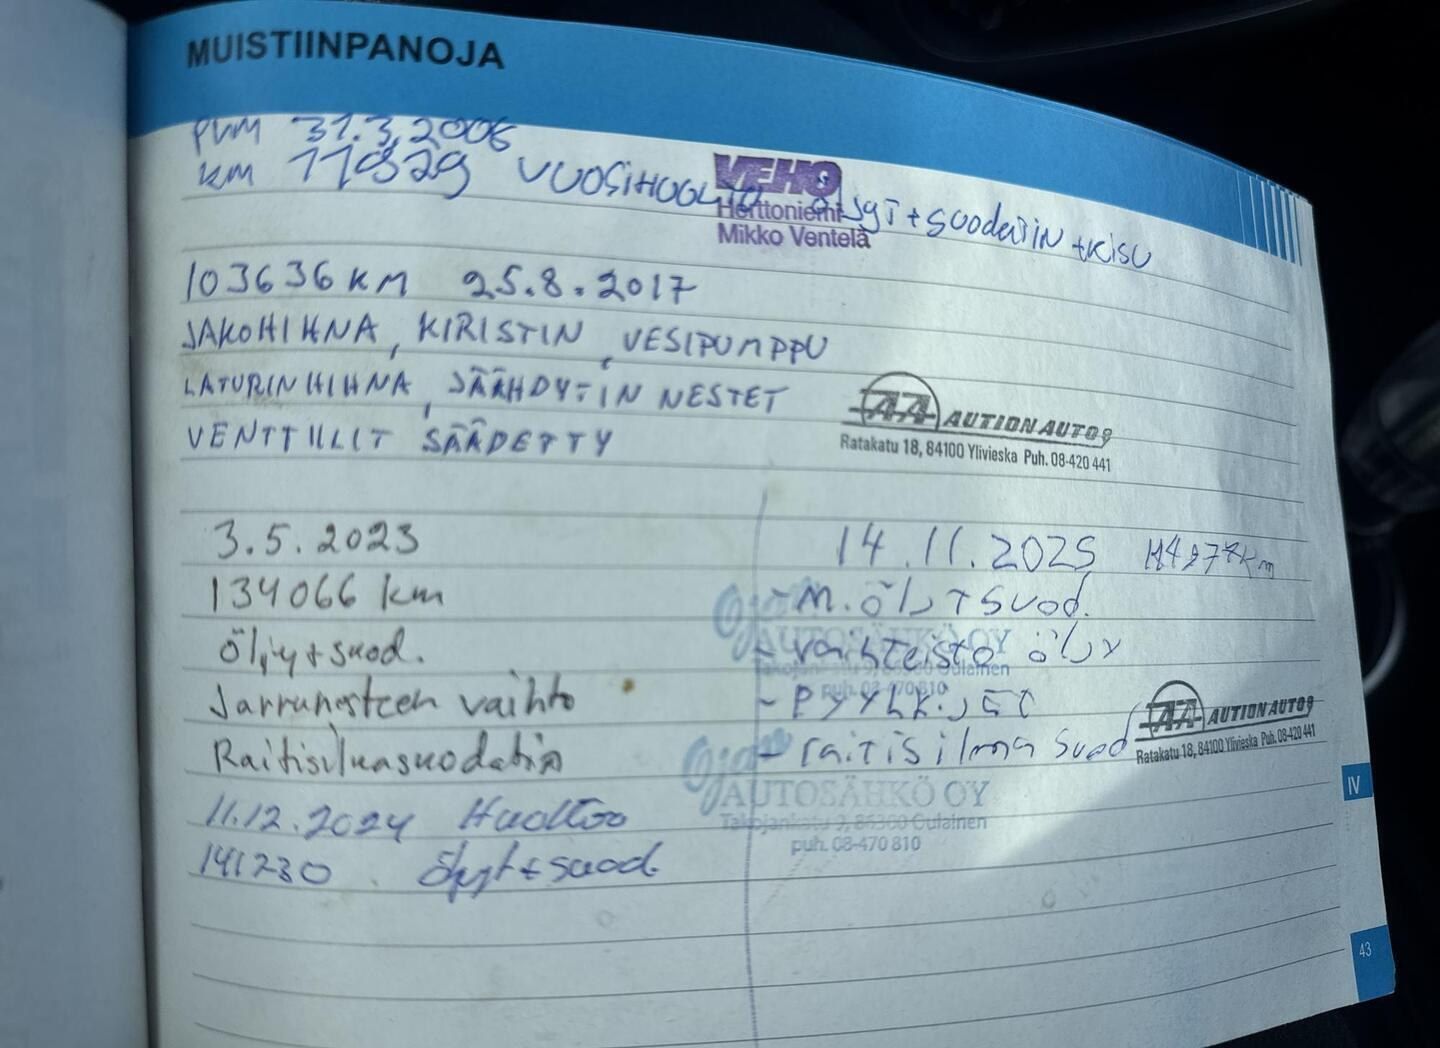 MUISTIINPANOJA
PVM 31.3.2006
KM VUOSIHUOLTO öljyt + suodatin + KISU
VEHO
Herttoniemi
Mikko Ventelä
103636 KM 25.8.2017
JAKOHIHNA, KIRISTIN, VESIPUMPPU
LATURINHIHNA, JÄÄHDYTIN NESTET
VENTTIILIT SÄÄDETTY
AA AUTIONAUTO
Ratakatu 18, 84100 Ylivieska Puh. 08-420 441
3.5.2023
134066 km
Öljy + suod.
Jarrunesteen vaihto
Raitisilmasuodatin
11.12.2024 Huoltoo
141230 Öljyt + suod.
14.11.2025
- M. ÖLJ + SUOD.
- vaihteisto ölJy
- PYYHK.JET
- raitisilma suod
AA AUTIONAUTO
Ratakatu 18, 84100 Ylivieska Puh. 08-420 441
AUTOSÄHKÖ OY
Oulainen
puh. 08-470 810
AUTOSÄHKÖ OY
Takojankatu 9, 86300 Oulainen
puh. 08-470 810
IV
43